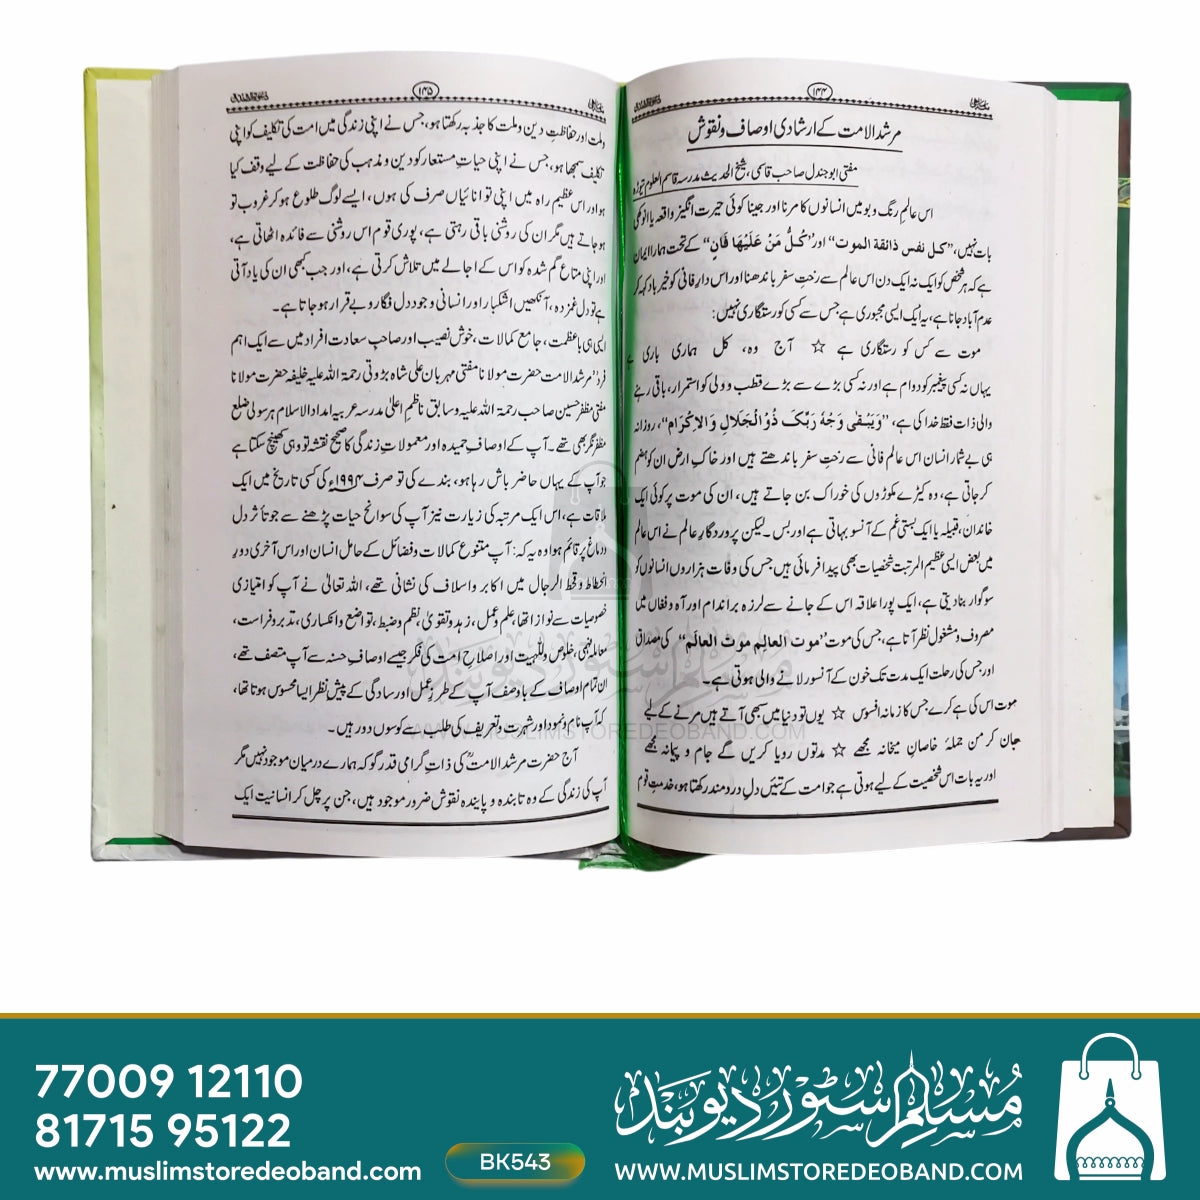 ۱۴۴
مرشد الامت کے ارشادی اوصاف و نقوش
مفتی ابو جندل صاحب قاسمی، شیخ الحدیث مدرسہ قاسم العلوم تیوڑہ
اس عالمِ رنگ و بو میں انسانوں کا مرنا اور جینا کوئی حیرت انگیز واقعہ یا انوکھی
بات نہیں، ”کل نفس ذائقة الموت“ اور ”کُلُّ مَنْ عَلَیْهَا فَانٍ“ کے تحت ہمارا ایمان
ہے کہ ہر شخص کو ایک نہ ایک دن اس عالم سے رختِ سفر باندھنا اور اس دارِ فانی کو خیر باد کہہ کر
عدم آباد جانا ہے، یہ ایک ایسی مجبوری ہے جس سے کسی کو رستگاری نہیں:
موت سے کس کو رستگاری ہے ☆ آج وہ، کل ہماری باری ہے
یہاں نہ کسی پیغمبر کو دوام ہے اور نہ کسی بڑے سے بڑے قطب و ولی کو استمرار، باقی رہنے
والی ذات فقط خدا کی ہے، ”وَیَبْقٰی وَجْهُ رَبِّکَ ذُوْالْجَلَالِ وَالْاِکْرَام“، روزانہ
ہی بے شمار انسان اس عالم فانی سے رختِ سفر باندھتے ہیں اور خاکِ ارض ان کو ہضم
کر جاتی ہے، وہ کیڑے مکوڑوں کی خوراک بن جاتے ہیں، ان کی موت پر کوئی ایک
خاندان، قبیلہ یا ایک بستی غم کے آنسو بہاتی ہے اور بس۔ لیکن پروردگارِ عالم نے اس عالم
میں بعض ایسی عظیم المرتبت شخصیات بھی پیدا فرمائی ہیں جس کی وفات ہزاروں انسانوں کو
سوگوار بنا دیتی ہے، ایک پورا علاقہ اس کے جانے سے لرزہ براندام اور آہ و فغاں میں
مصروف و مشغول نظر آتا ہے، جس کی موت ”موت العالِم موتُ العالَم“ کی مصداق
اور جس کی رحلت ایک مدت تک خون کے آنسو رلانے والی ہوتی ہے۔
موت اس کی ہے کرے جس کا زمانہ افسوس ☆ یوں تو دنیا میں سبھی آتے ہیں مرنے کے لیے
جان کر من جملۂ خاصانِ میخانہ مجھے ☆ مدتوں رویا کریں گے جام و پیمانہ مجھے
اور یہ بات اس شخصیت کے لیے ہوتی ہے جو امت کے تئیں دلِ دردمند رکھتا ہو، خدمتِ قوم
۱۴۵
وملت اور حفاظتِ دین و ملت کا جذبہ رکھتا ہو، جس نے اپنی زندگی میں امت کی تکلیف کو اپنی
تکلیف سمجھا ہو، جس نے اپنی حیاتِ مستعار کو دین و مذہب کی حفاظت کے لیے وقف کیا
ہو اور اس عظیم راہ میں اپنی توانائیاں صرف کی ہوں، ایسے لوگ طلوع ہو کر غروب تو
ہو جاتے ہیں مگر ان کی روشنی باقی رہتی ہے، پوری قوم اس روشنی سے فائدہ اٹھاتی ہے،
اور اپنی متاعِ گم شدہ کو اس کے اجالے میں تلاش کرتی ہے، اور جب کبھی ان کی یاد آتی
ہے تو دل غمزدہ، آنکھیں اشکبار اور انسانی وجود دل فگار و بے قرار ہو جاتا ہے۔
ایسی ہی باعظمت، جامع کمالات، خوش نصیب اور صاحبِ سعادت افراد میں سے ایک اہم
فرد ”مرشد الامت حضرت مولانا مفتی مہربان علی شاہ بڑوتی رحمۃ اللہ علیہ خلیفہ حضرت مولانا
مفتی مظفر حسین صاحب رحمۃ اللہ علیہ وسابق ناظم اعلیٰ مدرسہ عربیہ امداد الاسلام ہرسولی ضلع
مظفر نگر بھی تھے۔ آپ کے اوصافِ حمیدہ اور معمولاتِ زندگی کا صحیح نقشہ تو وہی کھینچ سکتا ہے
جو آپ کے یہاں حاضر باش رہا ہو، بندے کی تو صرف ۱۹۹۴ء کی کسی تاریخ میں ایک
ملاقات ہے، اس ایک مرتبہ کی زیارت نیز آپ کی سوانح حیات پڑھنے سے جو تأثر دل
ودماغ پر قائم ہوا وہ یہ کہ: آپ متنوع کمالات و فضائل کے حامل انسان اور اس آخری دورِ
انحطاط و قحط الرجال میں اکابر واسلاف کی نشانی تھے، اللہ تعالیٰ نے آپ کو امتیازی
خصوصیات سے نوازا تھا، علم و عمل، زہد و تقویٰ، نظم و ضبط، تواضع وانکساری، تدبر و فراست،
معاملہ فہمی، خلوص وللہیت اور اصلاحِ امت کی فکر جیسے اوصافِ حسنہ سے آپ متصف تھے،
ان تمام اوصاف کے باوصف آپ کے طرزِ عمل اور سادگی کے پیش نظر ایسا محسوس ہوتا تھا،
کہ آپ نام ونمود اور شہرت و تعریف کی طلب سے کوسوں دور ہیں۔
آج حضرت مرشد الامتؒ کی ذاتِ گرامی قدر گو کہ ہمارے درمیان موجود نہیں مگر
آپ کی زندگی کے وہ تابندہ و پایندہ نقوش ضرور موجود ہیں، جن پر چل کر انسانیت ایک
مسلم سٹور دیوبند
WWW.MUSLIMSTOREDEOBAND.COM
77009 12110
81715 95122
www.muslimstoredeoband.com
BK543
مسلم سٹور دیوبند
www.MUSLIMSTOREDEOBAND.COM